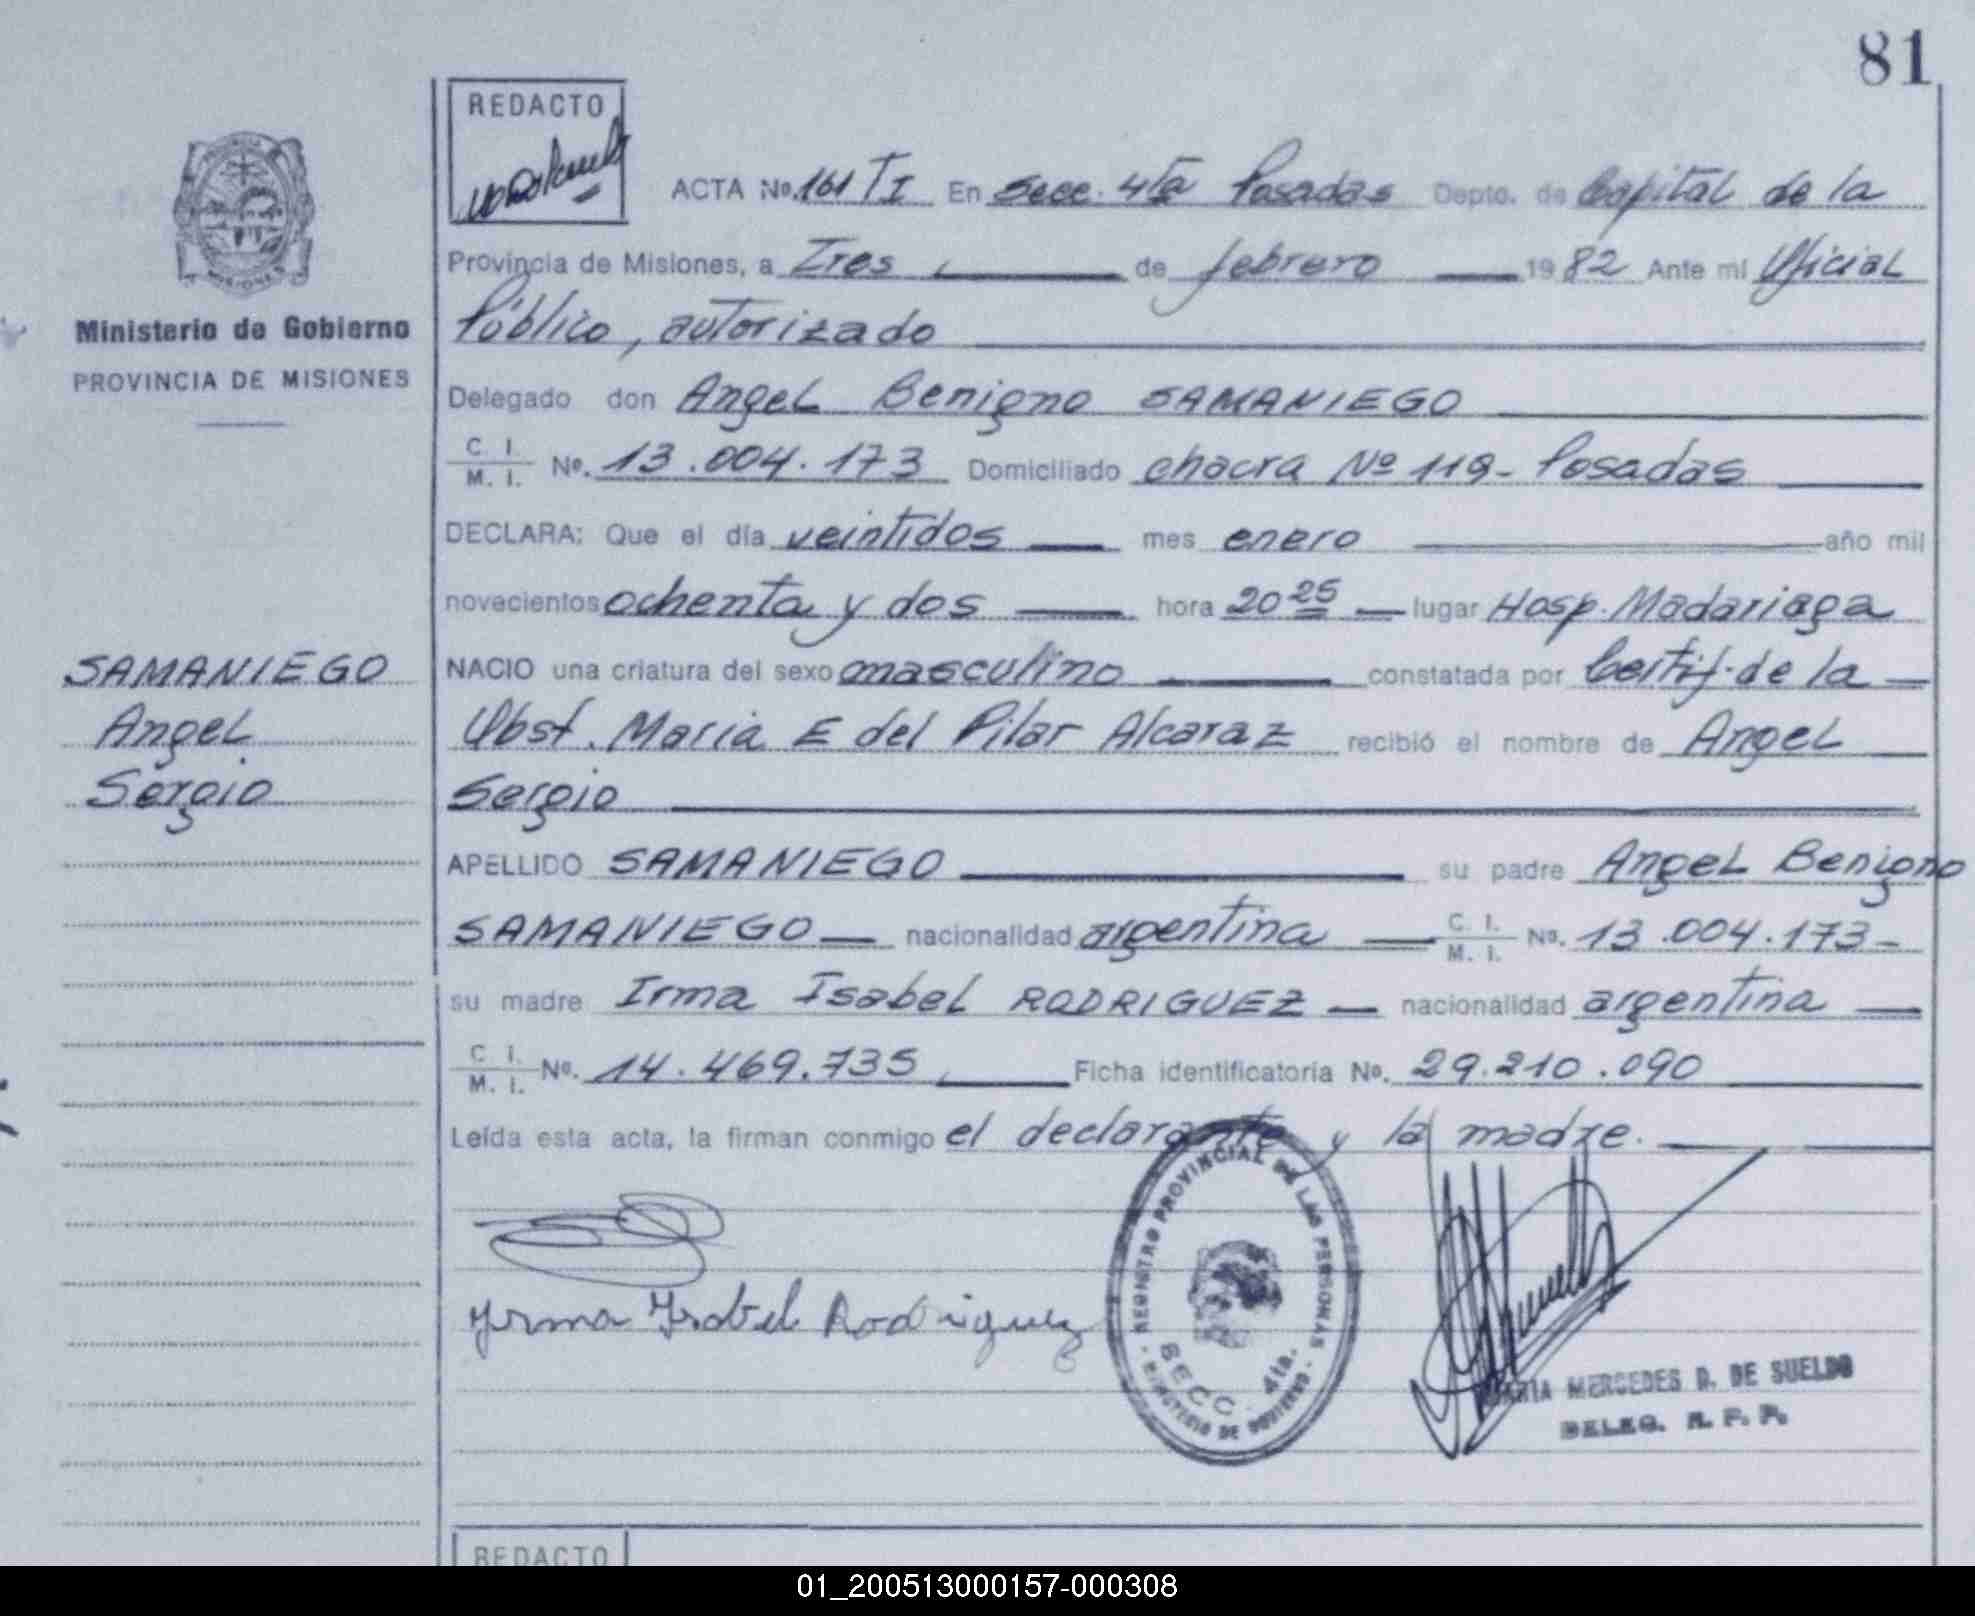 81
REDACTO
ACTA Nº. 161 TI En Secc. 4ta Posadas Depto. de Capital de la
Provincia de Misiones, a Tres de febrero 1982 Ante mi Oficial
Público, autorizado
MISIONES
Ministerio de Gobierno
PROVINCIA DE MISIONES
Delegado don Angel Benigno SAMANIEGO
C. I. M. I. Nº. 13.004.173 Domiciliado chacra Nº 119- Posadas
DECLARA: Que el día veintidos mes enero año mil
novecientos ochenta y dos hora 20 25 lugar Hosp. Madariaga
SAMANIEGO
Angel
Sergio
NACIO una criatura del sexo masculino constatada por Certif. de la
Obst. Maria E del Pilar Alcaraz recibió el nombre de Angel
Sergio
APELLIDO SAMANIEGO su padre Angel Benigno
SAMANIEGO nacionalidad argentina C. I. M. I. Nº. 13.004.173-
su madre Irma Isabel RODRIGUEZ nacionalidad argentina
C. I. M. I. Nº. 14.469.735 Ficha identificatoria Nº. 29.210.090
Leída esta acta, la firman conmigo el declarante y la madre.
Yrma Ysabel Rodriguez
REGISTRO PROVINCIAL DE LAS PERSONAS
SECC. 4ta.
MINISTERIO DE GOBIERNO
MARIA MERCEDES D. DE SUELDO
DELEG. R. P. P.
REDACTO
01_200513000157-000308